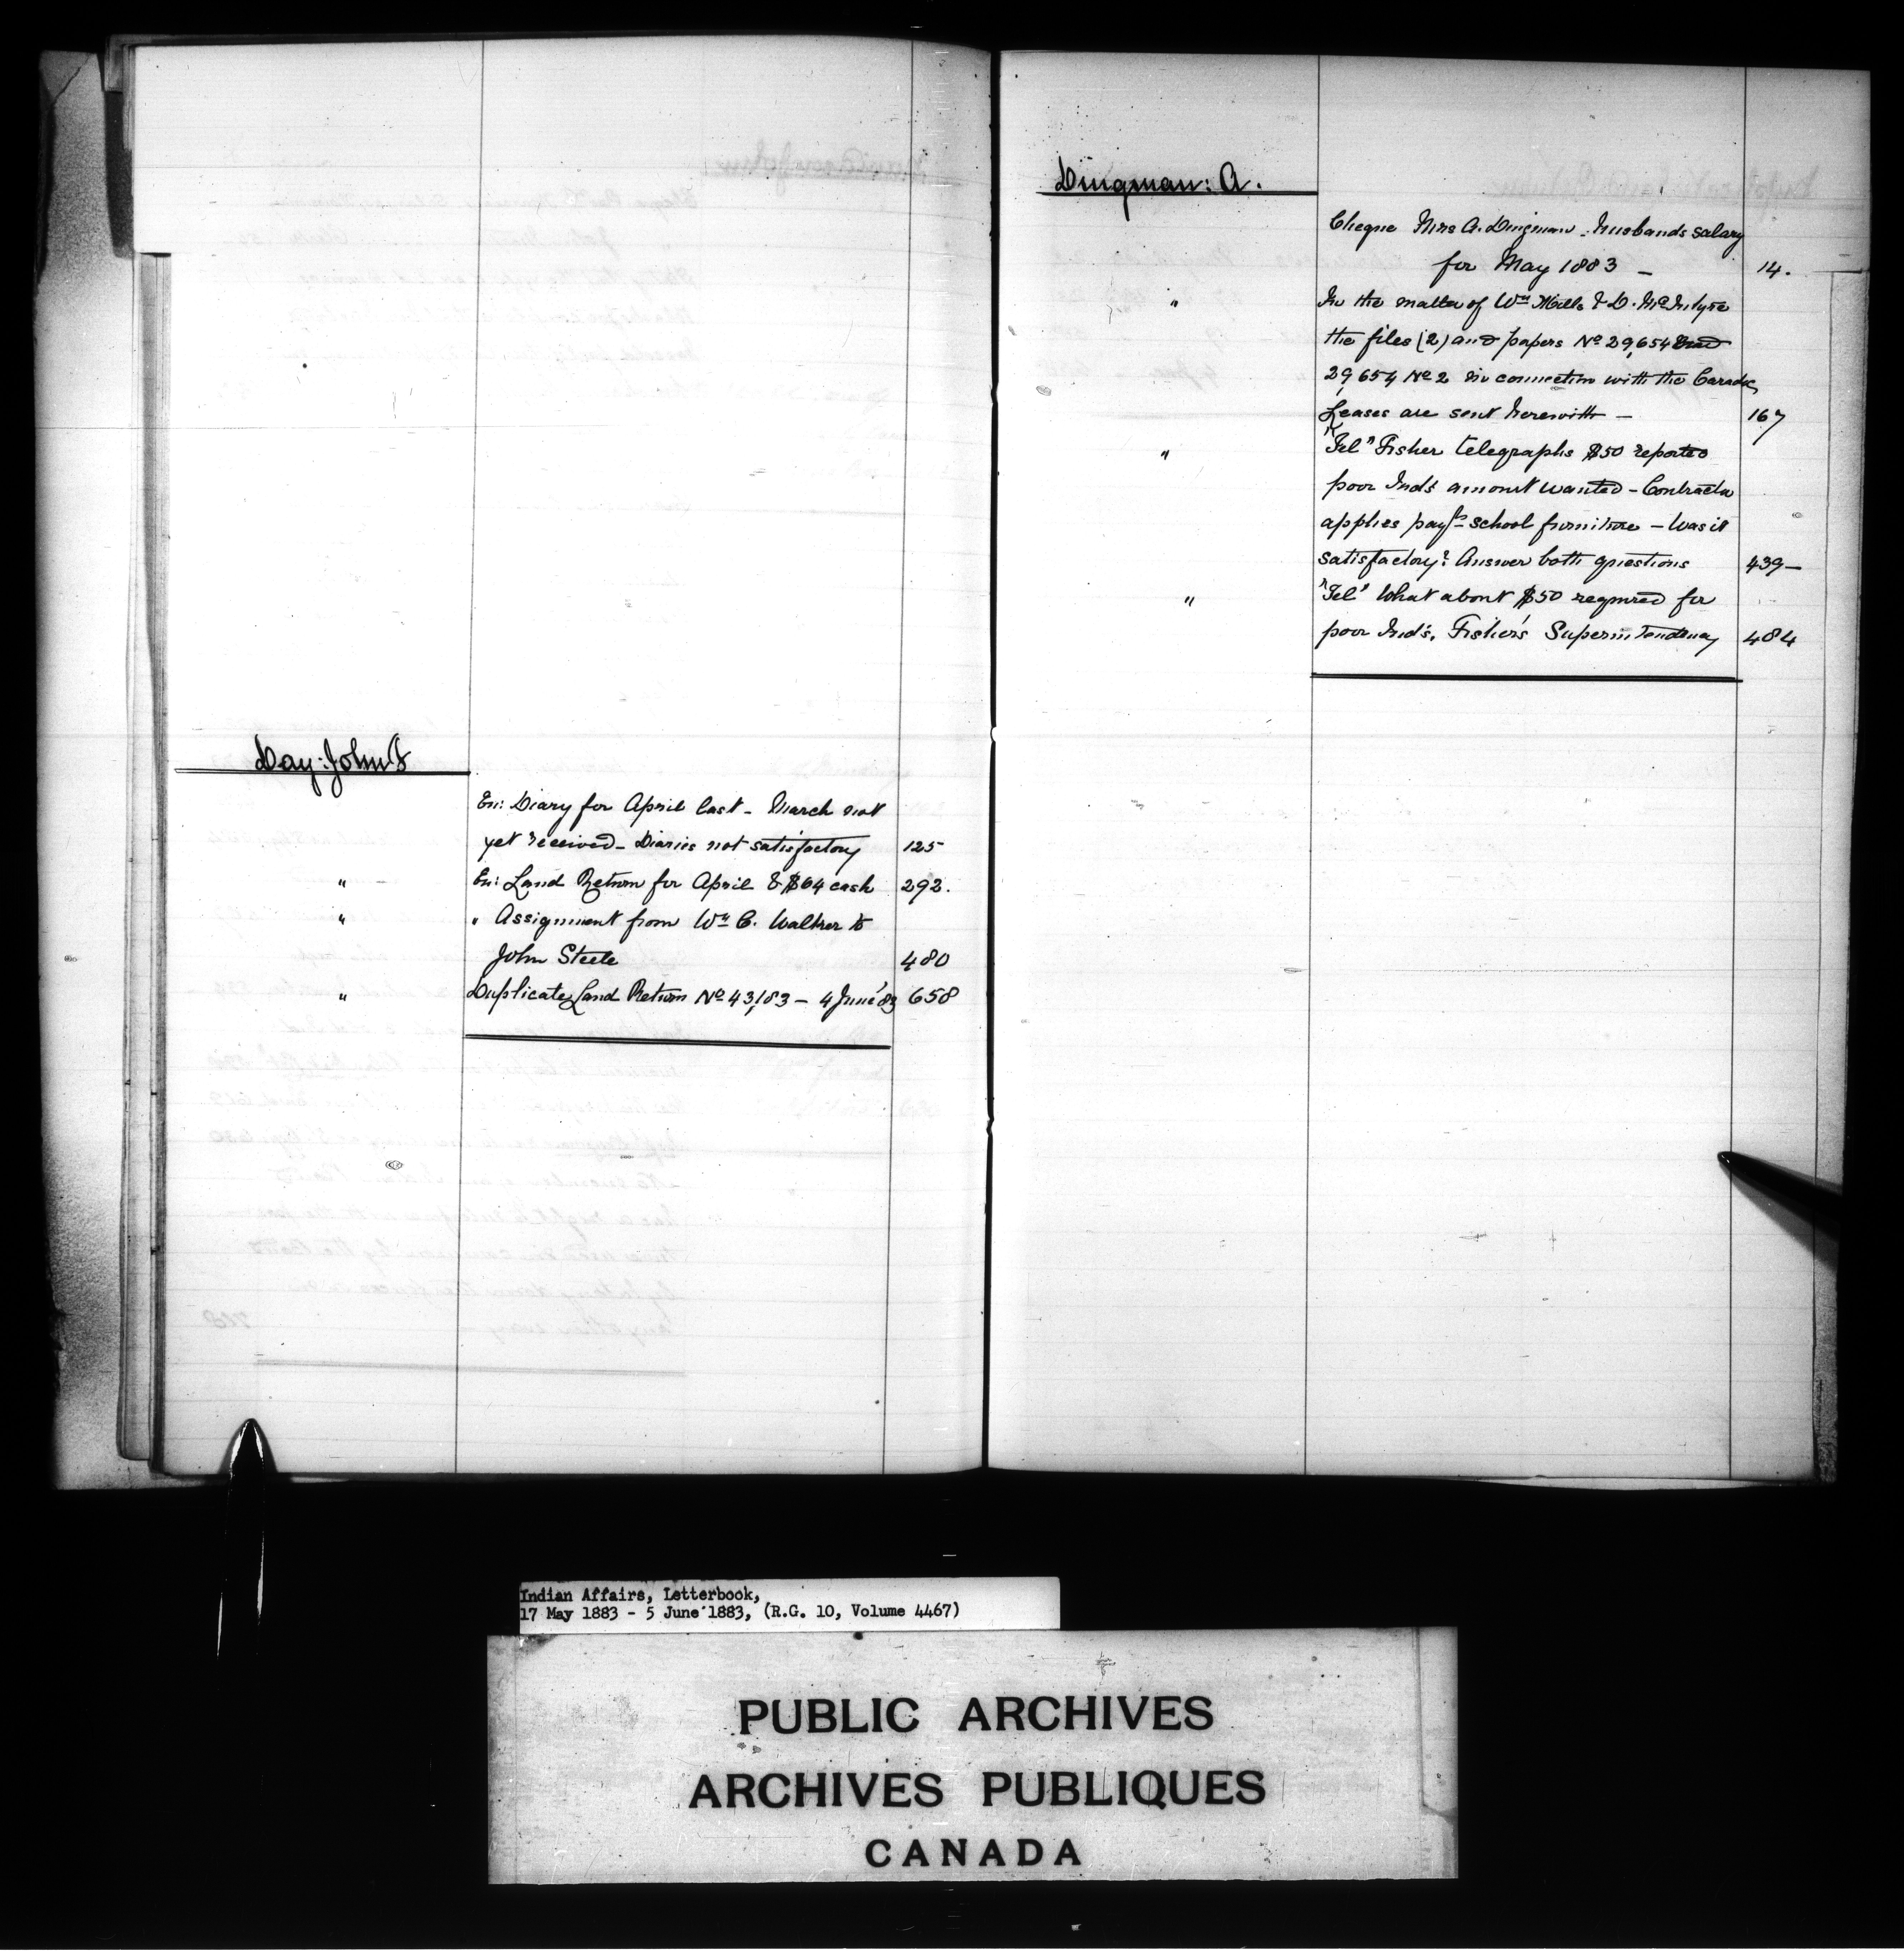 Day: John S
En: Diary for April last - March not
yet received - Diaries not satisfactory 125
" En: Land Return for April & $64 cash 292.
" " Assignment from Wm C. Walker to
John Steele 480
" Duplicate Land Return No 43,183 - 4 June '83 658
Dingman: A.
Cheque Mrs A. Dingman - husbands salary
for May 1883 - 14.
" In the matter of Wm Mills & D. McIntyre
the files (2) and papers No 29,654 and
29,654 No 2 in connection with the Caradoc
Leases are sent herewith - 167
" "Tel" Fisher telegraphs $50 reported
poor Inds amount wanted - Contractor
applies payt school furniture - Was it
satisfactory? Answer both questions 439 -
" "Tel" What about $50 required for
poor Ind's. Fisher's Superintendency 484
Indian Affairs, Letterbook,
17 May 1883 - 5 June 1883, (R.G. 10, Volume 4467)
PUBLIC ARCHIVES
ARCHIVES PUBLIQUES
CANADA